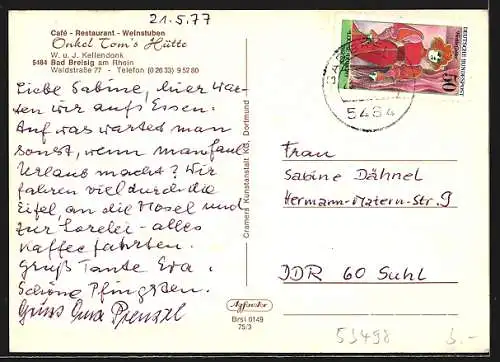 21.5.77
Café - Restaurant - Weinstuben
Onkel Tom's Hütte
W. u. J. Kellendonk
5484 Bad Breisig am Rhein
Waldstraße 77 - Telefon (0 26 33) 9 52 80
Liebe Sabine, hier war-
ten wir aufs Essen.
Auf was wartet man
sonst, wenn man faul
Urlaub macht? Wir
fahren viel durch die
Eifel, an die Mosel und
zur Lorelei - alles
Kaffeefahrten.
Gruß Tante Eva.
Schöne Pfingsten.
Cramers Kunstanstalt KG, Dortmund
Agfacolor
Brsi 0149
75/3
DEUTSCHE BUNDESPOST
50
5484
Frau
Sabine Dähnel
Hermann-Matern-Str. 9
DDR 60 Suhl
53498
3.-